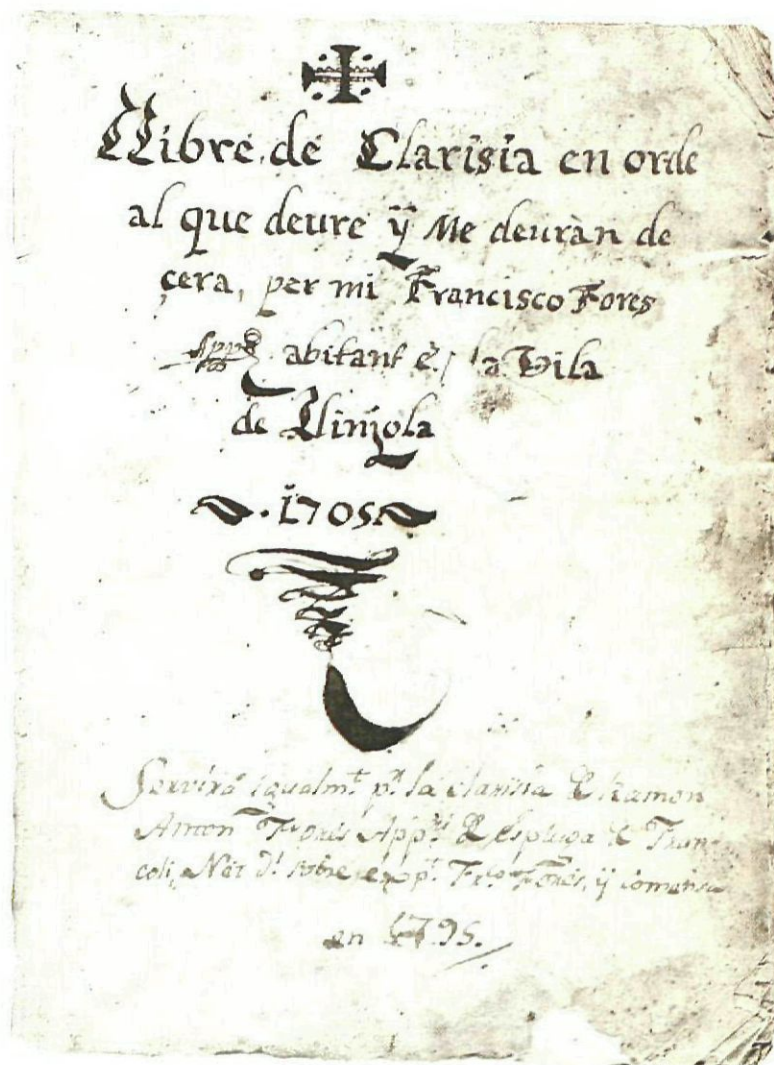 LLibre de Clarisia en orde
al que deure ÿ Me deuràn de
çera, per mi Francisco Fores
abitant è la Vila
de Llinÿola
1705
Servirá igualmt. pa. la clarisia de Ramon
Anton Forés Appri. de Espluga de Fran-
coli, Net dl. sobre Forés, ÿ comensa
en 1795.